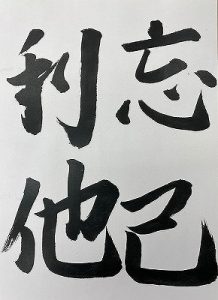 忘己
利他